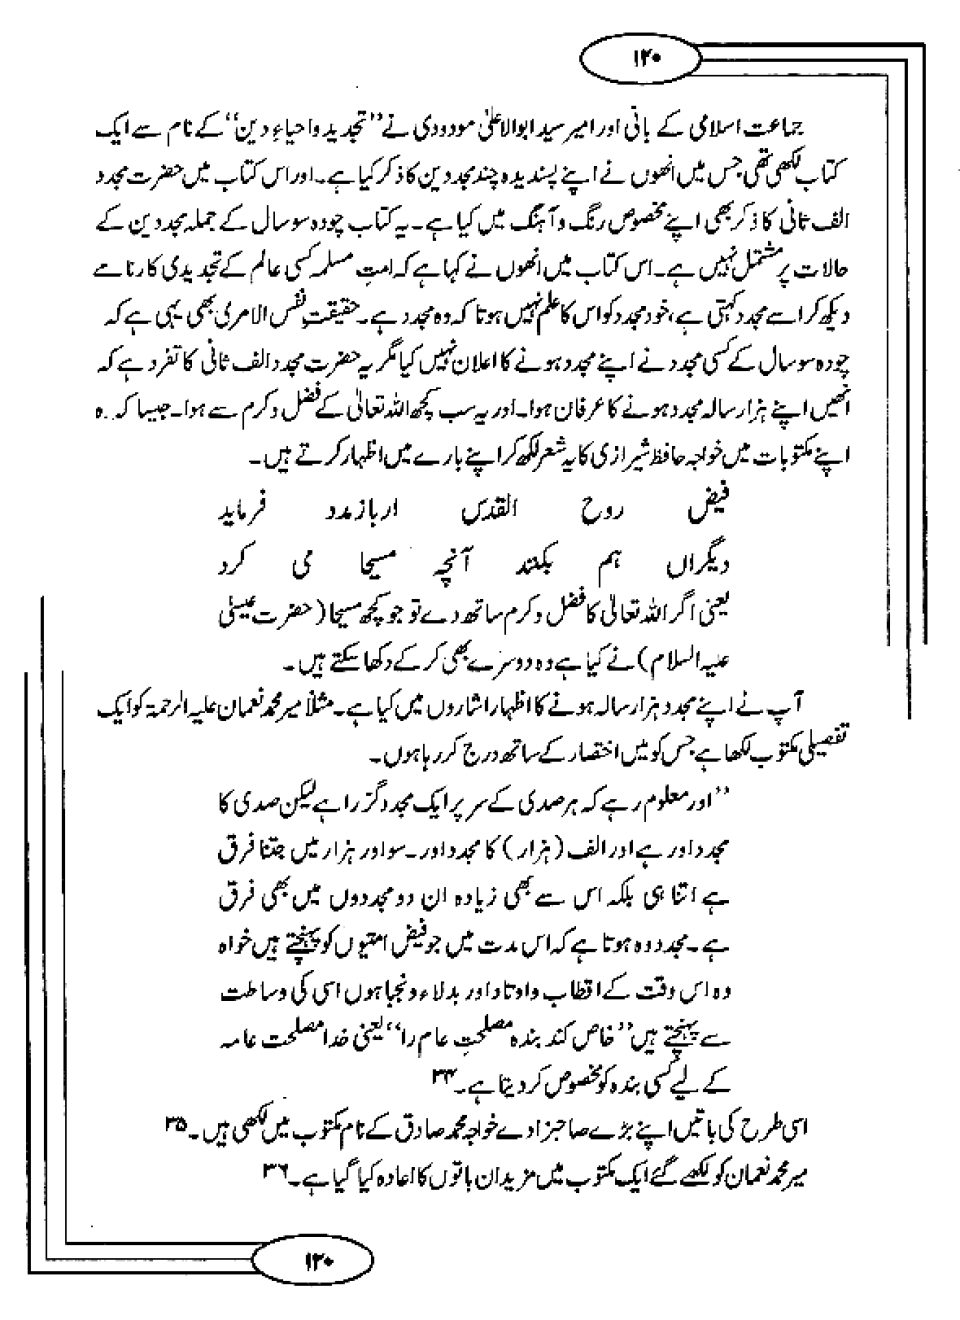 ۱۲۰
جماعت اسلامی کے بانی اور امیر سید ابوالاعلیٰ مودودی نے ’’تجدید و احیاءِ دین‘‘ کے نام سے ایک
کتاب لکھی تھی جس میں انھوں نے اپنے پسندیدہ چند مجددین کا ذکر کیا ہے۔ اور اس کتاب میں حضرت مجدد
الف ثانی کا ذکر بھی اپنے مخصوص رنگ و آہنگ میں کیا ہے۔ یہ کتاب چودہ سو سال کے جملہ مجددین کے
حالات پر مشتمل نہیں ہے۔ اس کتاب میں انھوں نے کہا ہے کہ امتِ مسلمہ کسی عالم کے تجدیدی کارنامے
دیکھ کر اسے مجدد کہتی ہے، خود مجدد کو اس کا علم نہیں ہوتا کہ وہ مجدد ہے۔ حقیقتِ نفس الامری بھی یہی ہے کہ
چودہ سو سال کے کسی مجدد نے اپنے مجدد ہونے کا اعلان نہیں کیا مگر یہ حضرت مجدد الف ثانی کا تفرد ہے کہ
انھیں اپنے ہزار سالہ مجدد ہونے کا عرفان ہوا۔ اور یہ سب کچھ اللہ تعالیٰ کے فضل و کرم سے ہوا۔ جیسا کہ وہ
اپنے مکتوبات میں خواجہ حافظ شیرازی کا یہ شعر لکھ کر اپنے بارے میں اظہار کرتے ہیں۔
فیض روح القدس ار باز مدد فرماید
دیگراں ہم بکنند آنچہ مسیحا می کرد
یعنی اگر اللہ تعالیٰ کا فضل و کرم ساتھ دے تو جو کچھ مسیحا (حضرت عیسیٰ
علیہ السلام) نے کیا ہے وہ دوسرے بھی کر کے دکھا سکتے ہیں۔
آپ نے اپنے مجدد ہزار سالہ ہونے کا اظہار اشاروں میں کیا ہے۔ مثلاً میر محمد نعمان علیہ الرحمۃ کو ایک
تفصیلی مکتوب لکھا ہے جس کو میں اختصار کے ساتھ درج کر رہا ہوں۔
’’اور معلوم رہے کہ ہر صدی کے سر پر ایک مجدد گزرا ہے لیکن صدی کا
مجدد اور ہے اور الف (ہزار) کا مجدد اور۔ سو اور ہزار میں جتنا فرق
ہے اتنا ہی بلکہ اس سے بھی زیادہ ان دو مجددوں میں بھی فرق
ہے۔ مجدد وہ ہوتا ہے کہ اس مدت میں جو فیض امتیوں کو پہنچتے ہیں خواہ
وہ اس وقت کے اقطاب و اوتاد اور بدلاء و نجبا ہوں اسی کی وساطت
سے پہنچتے ہیں ’’خاص کند بندہ مصلحتِ عام را‘‘ یعنی خدا مصلحت عامہ
کے لیے کسی بندہ کو مخصوص کر دیتا ہے۔ ۳۴
اسی طرح کی باتیں اپنے بڑے صاحبزادے خواجہ محمد صادق کے نام مکتوب میں لکھی ہیں۔ ۳۵
میر محمد نعمان کو لکھے گئے ایک مکتوب میں مزید ان باتوں کا اعادہ کیا گیا ہے۔ ۳۶
۱۲۰